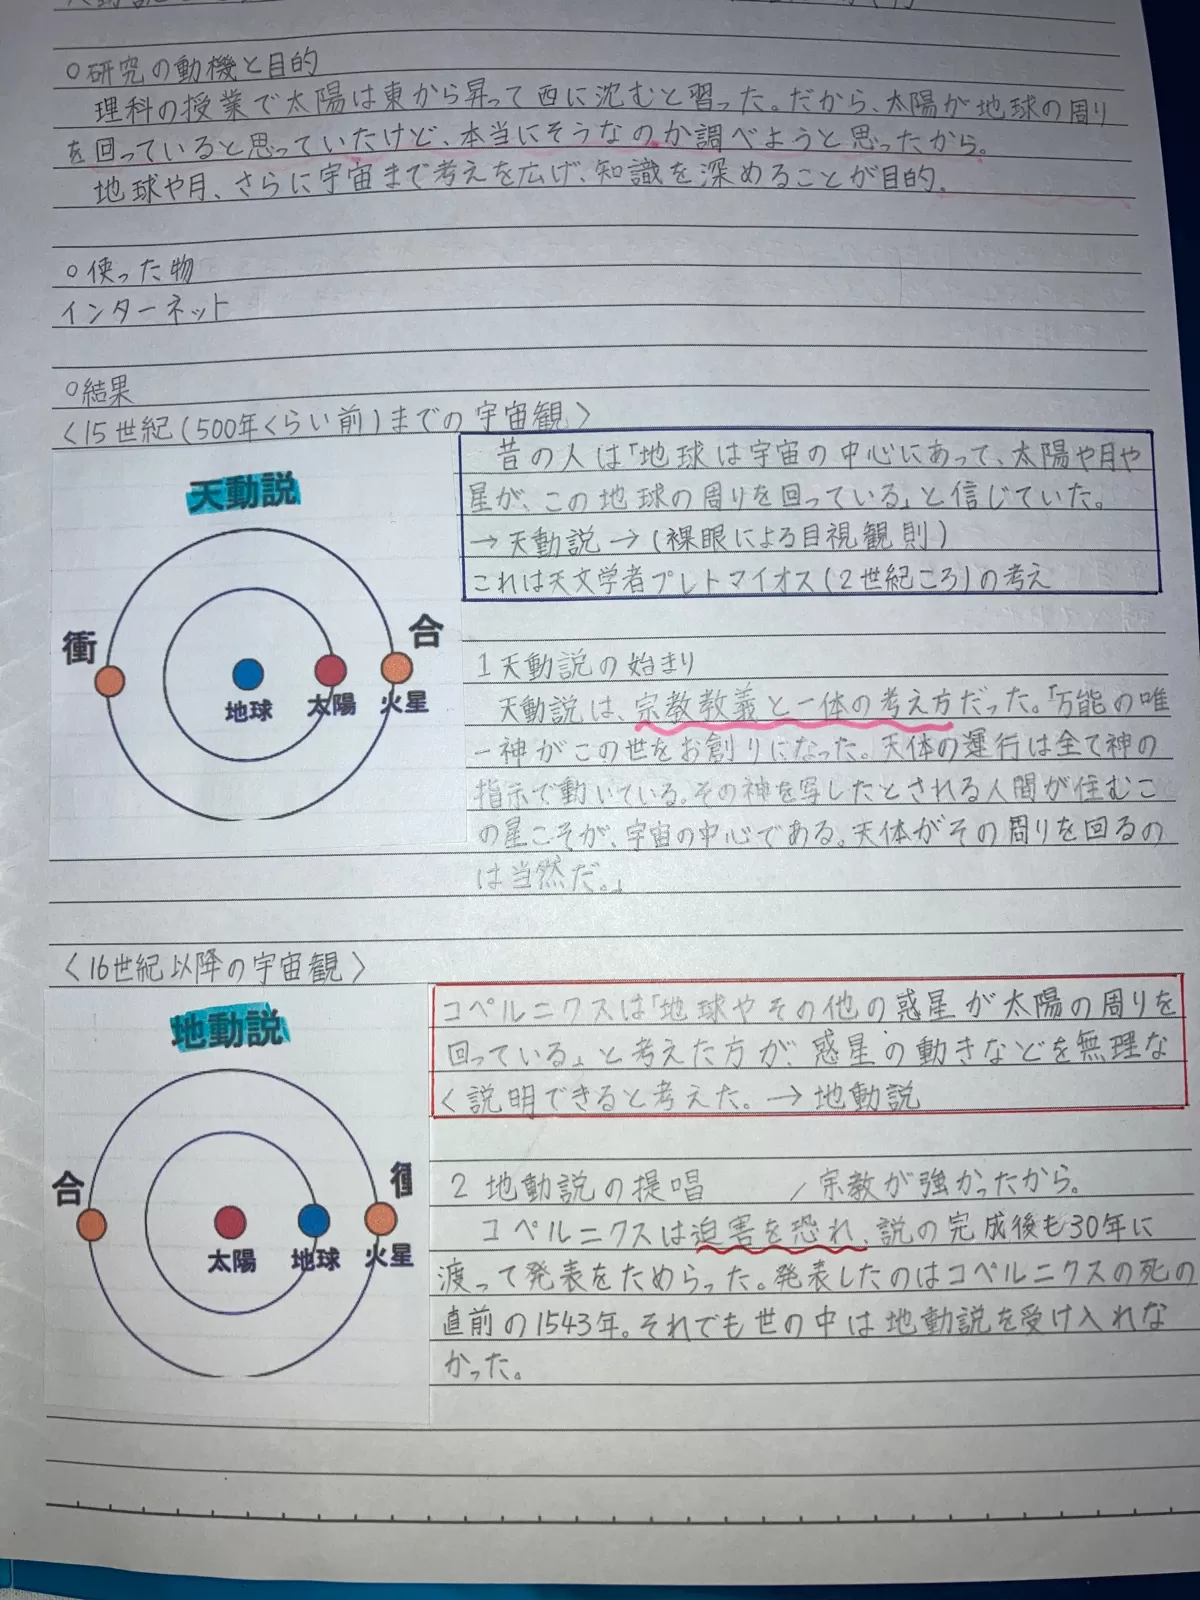 ○研究の動機と目的
理科の授業で太陽は東から昇って西に沈むと習った。だから、太陽が地球の周り
を回っていると思っていたけど、本当にそうなのか調べようと思ったから。
地球や月、さらに宇宙まで考えを広げ、知識を深めることが目的。
○使った物
インターネット
○結果
〈15世紀(500年くらい前)までの宇宙観〉
天動説
衝
合
地球
太陽
火星
昔の人は「地球は宇宙の中心にあって、太陽や月や
星が、この地球の周りを回っている」と信じていた。
→天動説→(裸眼による目視観則)
これは天文学者プレトマイオス(2世紀ころ)の考え
1 天動説の始まり
天動説は、宗教教義と一体の考え方だった。「万能の唯
一神がこの世をお創りになった。天体の運行は全て神の
指示で動いている。その神を写したとされる人間が住むこ
の星こそが、宇宙の中心である。天体がその周りを回るの
は当然だ。」
〈16世紀以降の宇宙観〉
地動説
合
衝
太陽
地球
火星
コペルニクスは「地球やその他の惑星が太陽の周りを
回っている」と考えた方が、惑星の動きなどを無理な
く説明できると考えた。→地動説
2 地動説の提唱
/宗教が強かったから。
コペルニクスは迫害を恐れ、説の完成後も30年に
渡って発表をためらった。発表したのはコペルニクスの死の
直前の1543年。それでも世の中は地動説を受け入れな
かった。